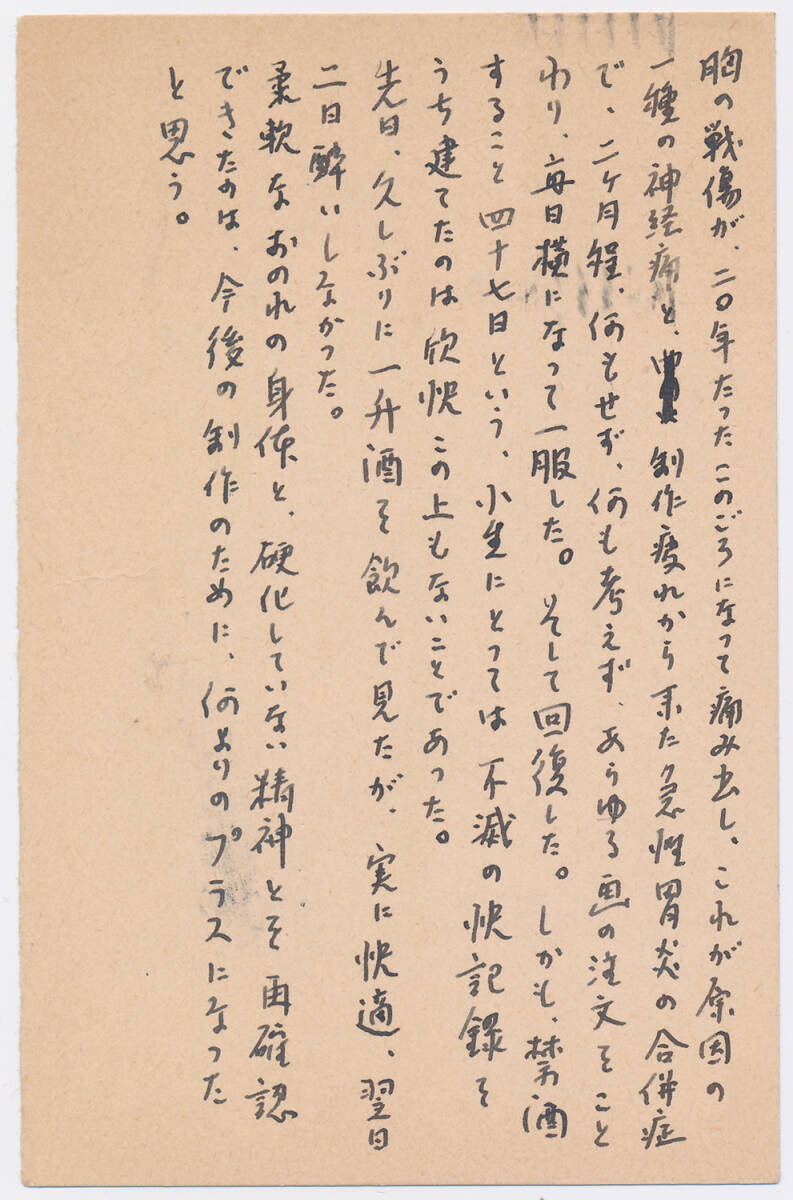 胸の戦傷が、二〇年たったこのごろになって痛み出し、これが原因の
一種の神経痛と、創作疲れから来た急性胃炎の合併症
で、二ヶ月程、何もせず、何も考えず、あらゆる画の注文をこと
わり、毎日横になって一服した。そして回復した。しかも、禁酒
すること四十七日という、小生にとっては不滅の快記録を
うち建てたのは欣快この上もないことであった。
先日、久しぶりに一升酒を飲んで見たが、実に快適、翌日
二日酔いしなかった。
柔軟なおのれの身体と、硬化していない精神とを再確認
できたのは、今後の創作のために、何よりのプラスになった
と思う。